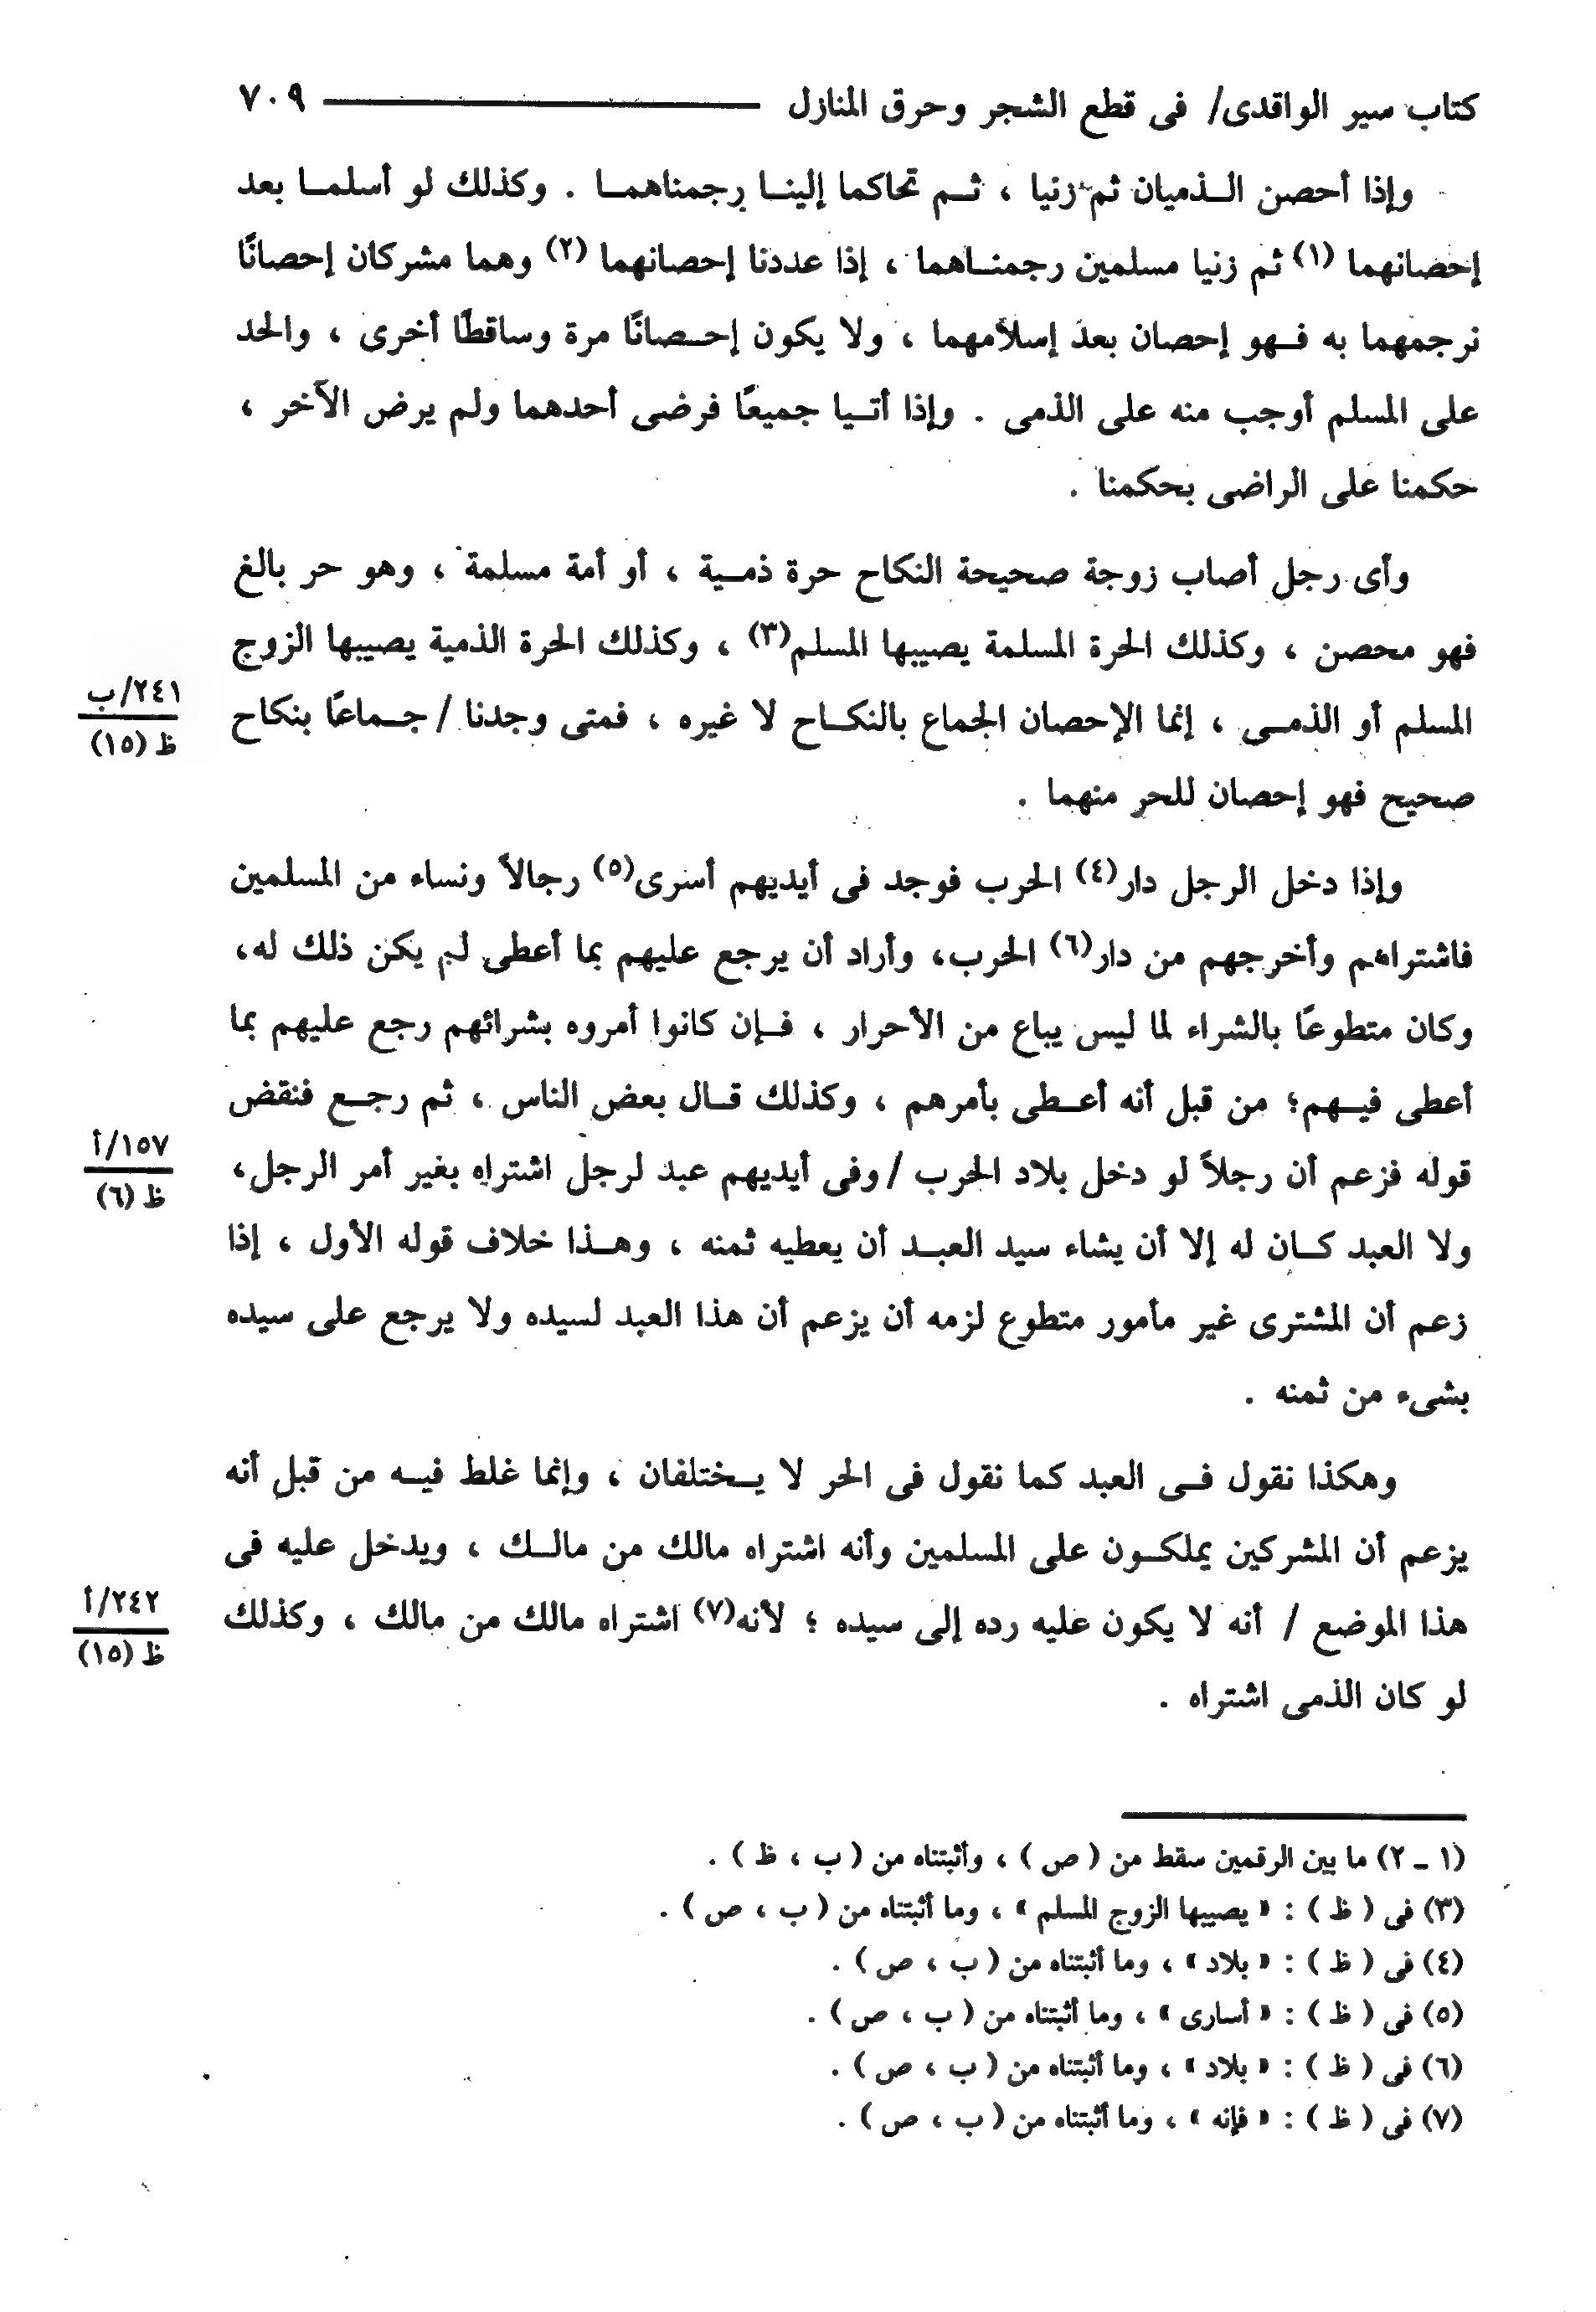 كتاب سير الواقدى/ فى قطع الشجر وحرق المنازل ــــــــــ ٧٠٩
وإذا أحصن الـذميان ثم زنيا ، ثـم تحاكما إلينـا رجمناهمـا . وكذلك لو أسلمـا بعد
إحصانهما (١) ثم زنيا مسلمين رجمنـاهما ، إذا عددنا إحصانهما (٢) وهما مشركان إحصانًا
نرجمهما به فـهو إحصان بعد إسلامهما ، ولا يكون إحـصانًا مرة وساقطًا أخرى ، والحد
على المسلم أوجب منه على الذمى . وإذا أتـيا جميعًا فرضى أحدهما ولم يرض الآخر ،
حكمنا على الراضى بحكمنا .
وأى رجل أصاب زوجة صحيحة النكاح حرة ذمـية ، أو أمة مسلمة ، وهو حر بالغ
فهو محصن ، وكذلك الحرة المسلمة يصيبها المسلم(٣) ، وكذلك الحرة الذمية يصيبها الزوج
المسلم أو الذمـى ، إنما الإحصان الجماع بالنكـاح لا غيره ، فمتى وجدنا / جـماعًا بنكاح
٢٤١/ب
ظ (١٥)
صحيح فهو إحصان للحر منهما .
وإذا دخل الرجل دار(٤) الحرب فوجد فى أيديهم أسرى(٥) رجالاً ونساء من المسلمين
فاشتراهم وأخرجهم من دار(٦) الحرب، وأراد أن يرجع عليهم بما أعطى لم يكن ذلك له،
وكان متطوعًا بالشراء لما ليس يباع من الأحرار ، فـإن كانوا أمروه بشرائهم رجع عليهم بما
أعطى فيـهم؛ من قبل أنه أعـطى بأمرهم ، وكذلك قـال بعض الناس ، ثم رجـع فنقض
قوله فزعم أن رجلاً لو دخل بلاد الحرب / وفى أيديهم عبد لرجل اشتراه بغير أمر الرجل،
١٥٧/أ
ظ (٦)
ولا العبد كـان له إلا أن يشاء سيد العبـد أن يعطيه ثمنه ، وهـذا خلاف قوله الأول ، إذا
زعم أن المشترى غير مأمور متطوع لزمه أن يزعم أن هذا العبد لسيده ولا يرجع على سيده
بشىء من ثمنه .
وهكذا نقول فـى العبد كما نقول فى الحر لا يـختلفان ، وإنما غلط فيـه من قبل أنه
يزعم أن المشركين يملكـون على المسلمين وأنه اشتراه مالك من مالـك ، ويدخل عليه فى
هذا الموضع / أنه لا يكون عليه رده إلى سيده ؛ لأنه(٧) اشتراه مالك من مالك ، وكذلك
٢٤٢/أ
ظ (١٥)
لو كان الذمى اشتراه .
(١ ـ ٢) ما بين الرقمين سقط من ( ص ) ، وأثبتناه من ( ب ، ظ ) .
(٣) فى ( ظ ) : « يصيبها الزوج المسلم » ، وما أثبتناه من ( ب ، ص ) .
(٤) فى ( ظ ) : « بلاد » ، وما أثبتناه من ( ب ، ص ) .
(٥) فى ( ظ ) : « أسارى » ، وما أثبتناه من ( ب ، ص ) .
(٦) فى ( ظ ) : « بلاد » ، وما أثبتناه من ( ب ، ص ) .
(٧) فى ( ظ ) : « فإنه » ، وما أثبتناه من ( ب ، ص ) .